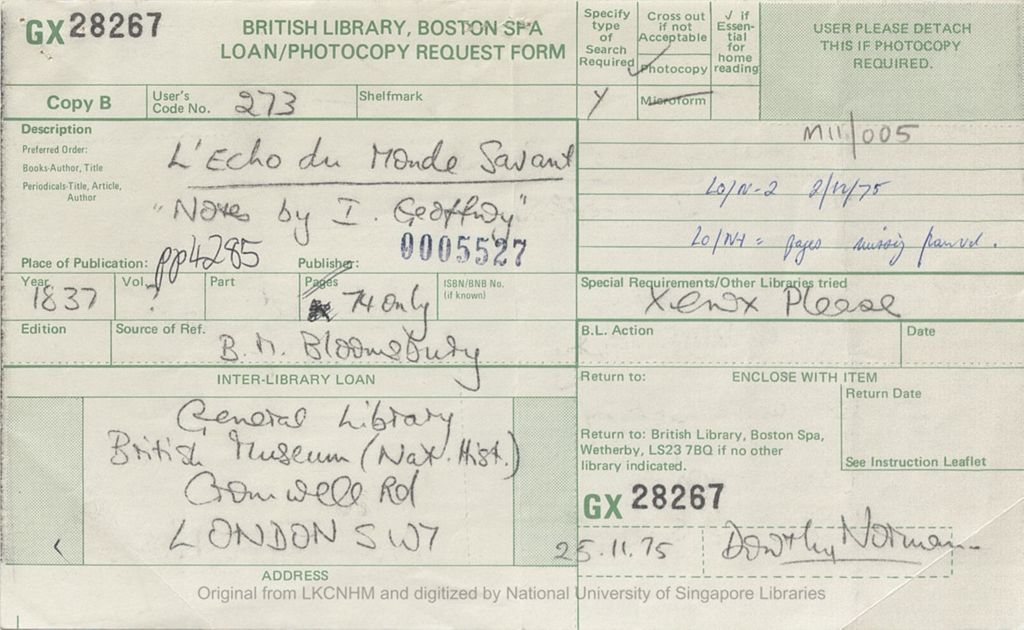 GX 28267
BRITISH LIBRARY, BOSTON SPA
LOAN/PHOTOCOPY REQUEST FORM
Specify type of Search Required
Cross out if not Acceptable
√ if Essential for home reading
USER PLEASE DETACH
THIS IF PHOTOCOPY
REQUIRED.
Photocopy
Copy B
User's Code No. 273
Shelfmark
Y
Microform
Description
Preferred Order:
Books-Author, Title
Periodicals-Title, Article,
Author
L'Echo du Monde Savant
"Notes by I. Geoffroy"
M11/005
LO/N-2 2/12/75
LO/N1 = pages missing
Place of Publication: pp4285
Publisher:
0005527
Year 1837
Vol. ?
Part
Pages 74 only
ISBN/BNB No.
(if known)
Special Requirements/Other Libraries tried
Xerox Please
Edition
Source of Ref.
B.M. Bloomsbury
B.L. Action
Date
INTER-LIBRARY LOAN
General Library
British Museum (Nat. Hist.)
Cromwell Rd
LONDON SW7
ADDRESS
Return to:
ENCLOSE WITH ITEM
Return Date
Return to: British Library, Boston Spa,
Wetherby, LS23 7BQ if no other
library indicated.
See Instruction Leaflet
GX 28267
25.11.75
Dorothy Norman
Original from LKCNHM and digitized by National University of Singapore Libraries